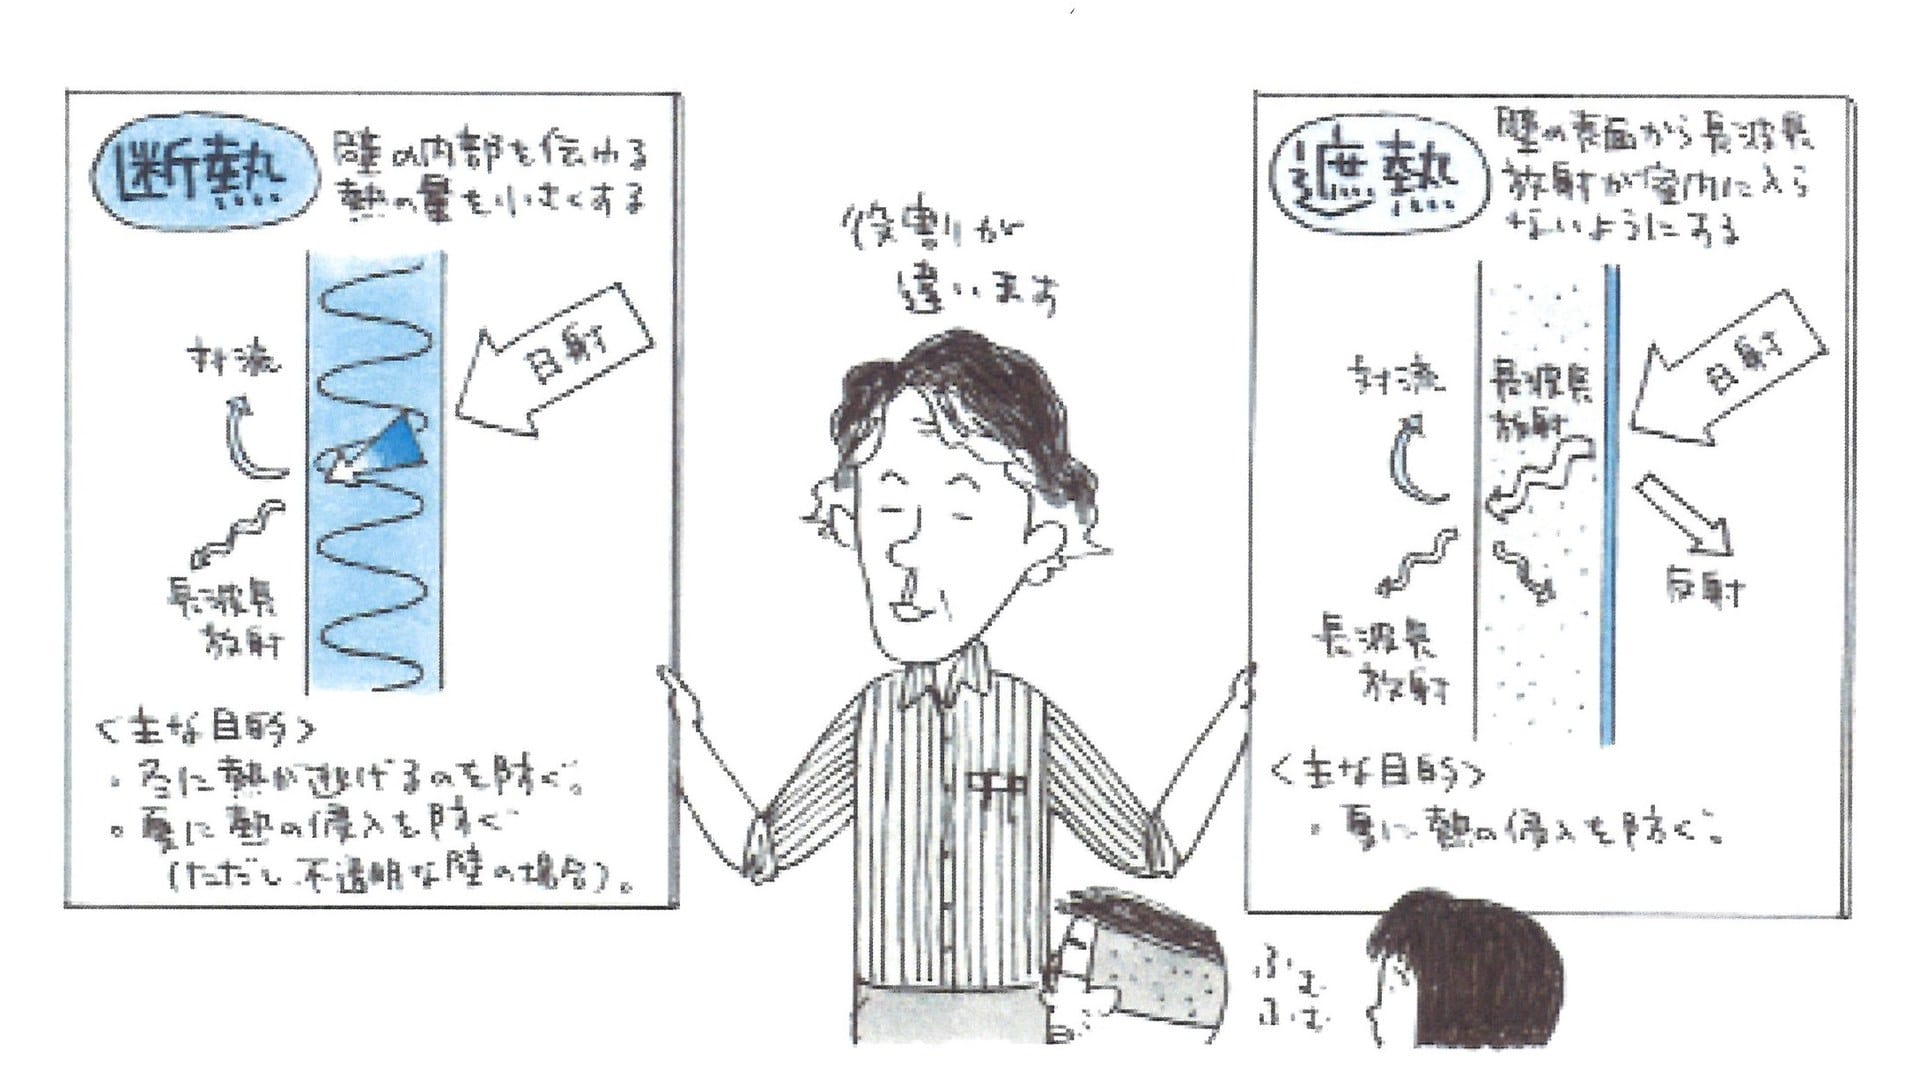 断熱
壁の内部を伝わる
熱の量を小さくする
日射
対流
長波長
放射
<主な目的>
・冬に熱が逃げるのを防ぐ。
・夏に熱の侵入を防ぐ
(ただし、不透明な壁の場合)。
役割が
違います
遮熱
壁の表面から長波長
放射が室内に入ら
ないようにする
日射
対流
長波長
放射
反射
長波長
放射
<主な目的>
・夏に熱の侵入を防ぐ。
ふむ
ふむ